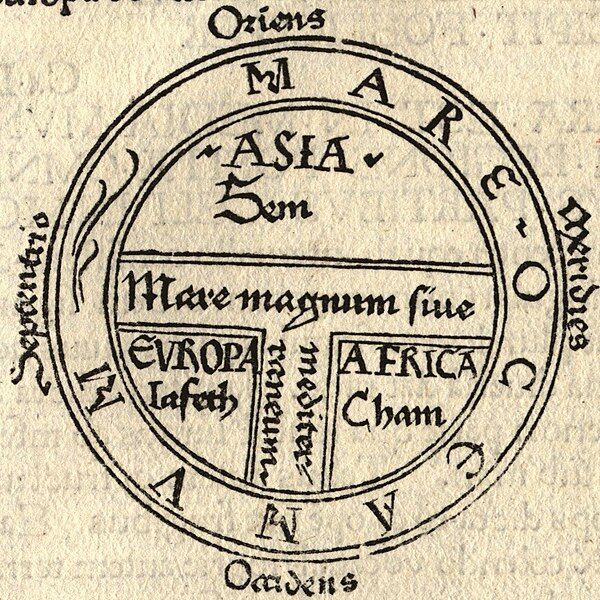 Oriens
MARE OCEANVM
ASIA
Sem
Septentrio
Meridies
Mare magnum ſiue
mediter/
raneum
EVROPA
Iafeth
AFRICA
Cham
Occidens